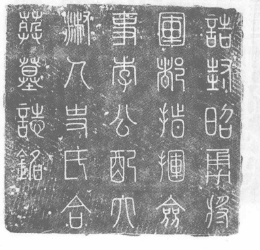 誥封昭勇將
軍都指揮僉
事李公配太
淑人氏合
葬墓誌銘